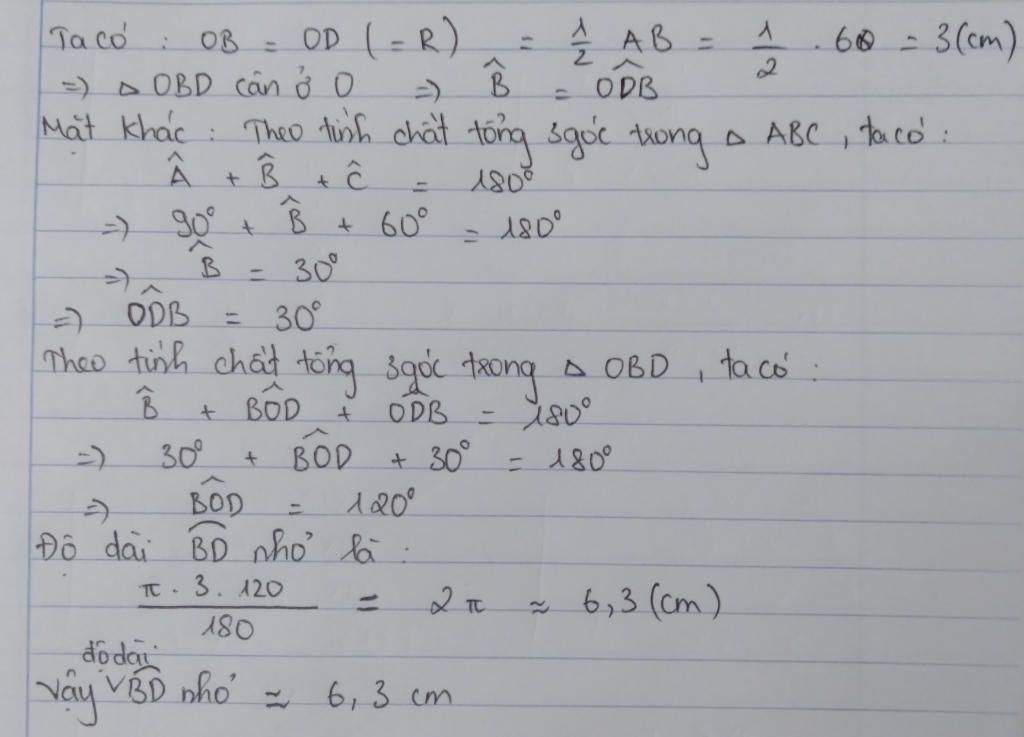 Ta có : OB = OD ( = R ) = 1/2 AB = 1/2 . 6 = 3 (cm)
=> △ OBD cân ở O => B̂ = ODB̂
Mặt khác : Theo tính chất tổng 3 góc trong △ ABC , ta có :
Â + B̂ + Ĉ = 180°
=> 90° + B̂ + 60° = 180°
=> B̂ = 30°
=> ODB̂ = 30°
Theo tính chất tổng 3 góc trong △ OBD , ta có :
B̂ + BOD̂ + ODB̂ = 180°
=> 30° + BOD̂ + 30° = 180°
=> BOD̂ = 120°
Độ dài BD nhỏ là :
π . 3 . 120 / 180 = 2π ≈ 6,3 (cm)
Vậy độ dài BD nhỏ ≈ 6,3 cm